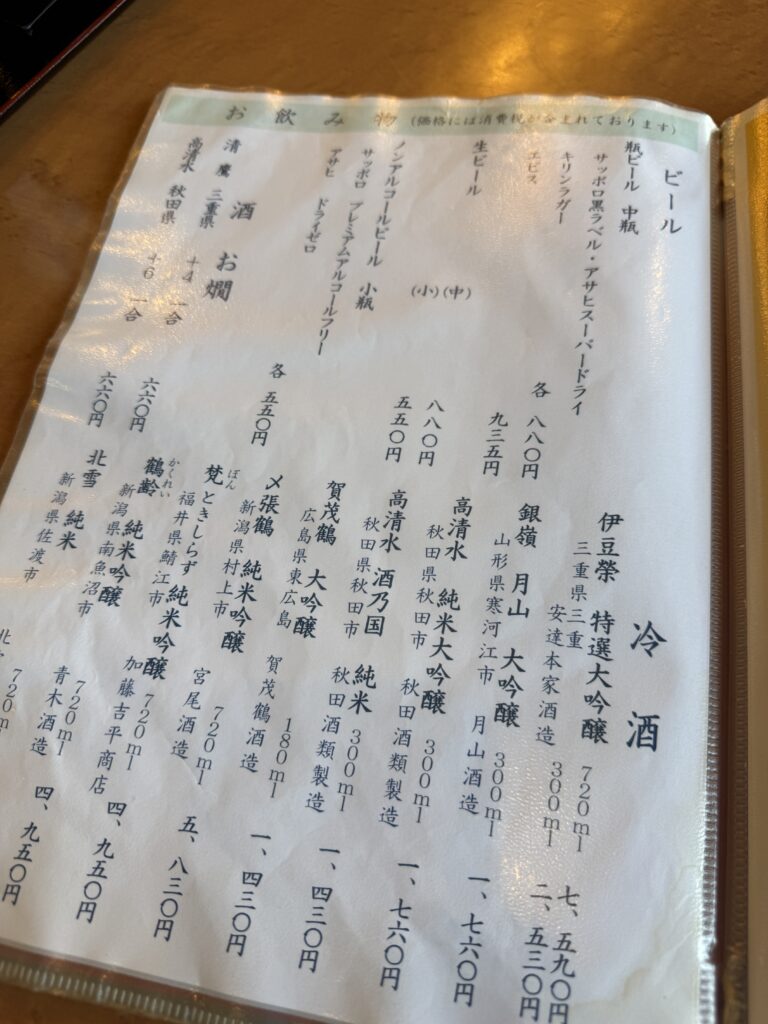 お飲み物(価格には消費税が含まれております)
ビール
瓶ビール 中瓶
サッポロ黒ラベル・アサヒスーパードライ
キリンラガー 各 八八〇円
エビス 九三五円
生ビール (中) 八八〇円
(小) 五五〇円
ノンアルコールビール 小瓶
サッポロ プレミアムアルコールフリー
アサヒ ドライゼロ 各 五五〇円
酒 お燗
清鷹 三重県 +4 一合 六六〇円
高清水 秋田県 +6 一合 六六〇円
冷酒
伊豆榮 特選大吟醸 720ml 七、五九〇円
三重県三重 安達本家酒造 300ml 二、五三〇円
銀嶺 月山 大吟醸 300ml 一、七六〇円
山形県寒河江市 月山酒造
高清水 純米大吟醸 300ml 一、七六〇円
秋田県秋田市 秋田酒類製造
高清水 酒乃国 純米 300ml 一、四三〇円
秋田県秋田市 秋田酒類製造
賀茂鶴 大吟醸 180ml 一、四三〇円
広島県東広島 賀茂鶴酒造
〆張鶴 純米吟醸 720ml 五、八三〇円
新潟県村上市 宮尾酒造
ぼん
梵 ときしらず 純米吟醸 720ml 四、九五〇円
福井県鯖江市 加藤吉平商店
かくれい
鶴齢 純米吟醸 720ml 四、九五〇円
新潟県南魚沼市 青木酒造
北雪 純米 720ml
新潟県佐渡市